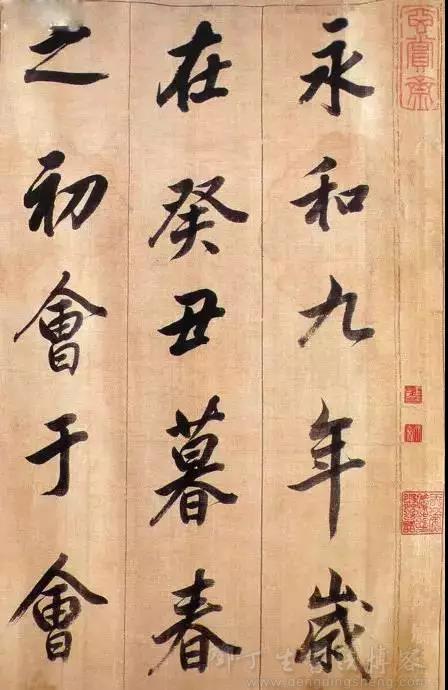 永和九年歳
在癸丑暮春
之初會于會
www.dengdingsheng.com